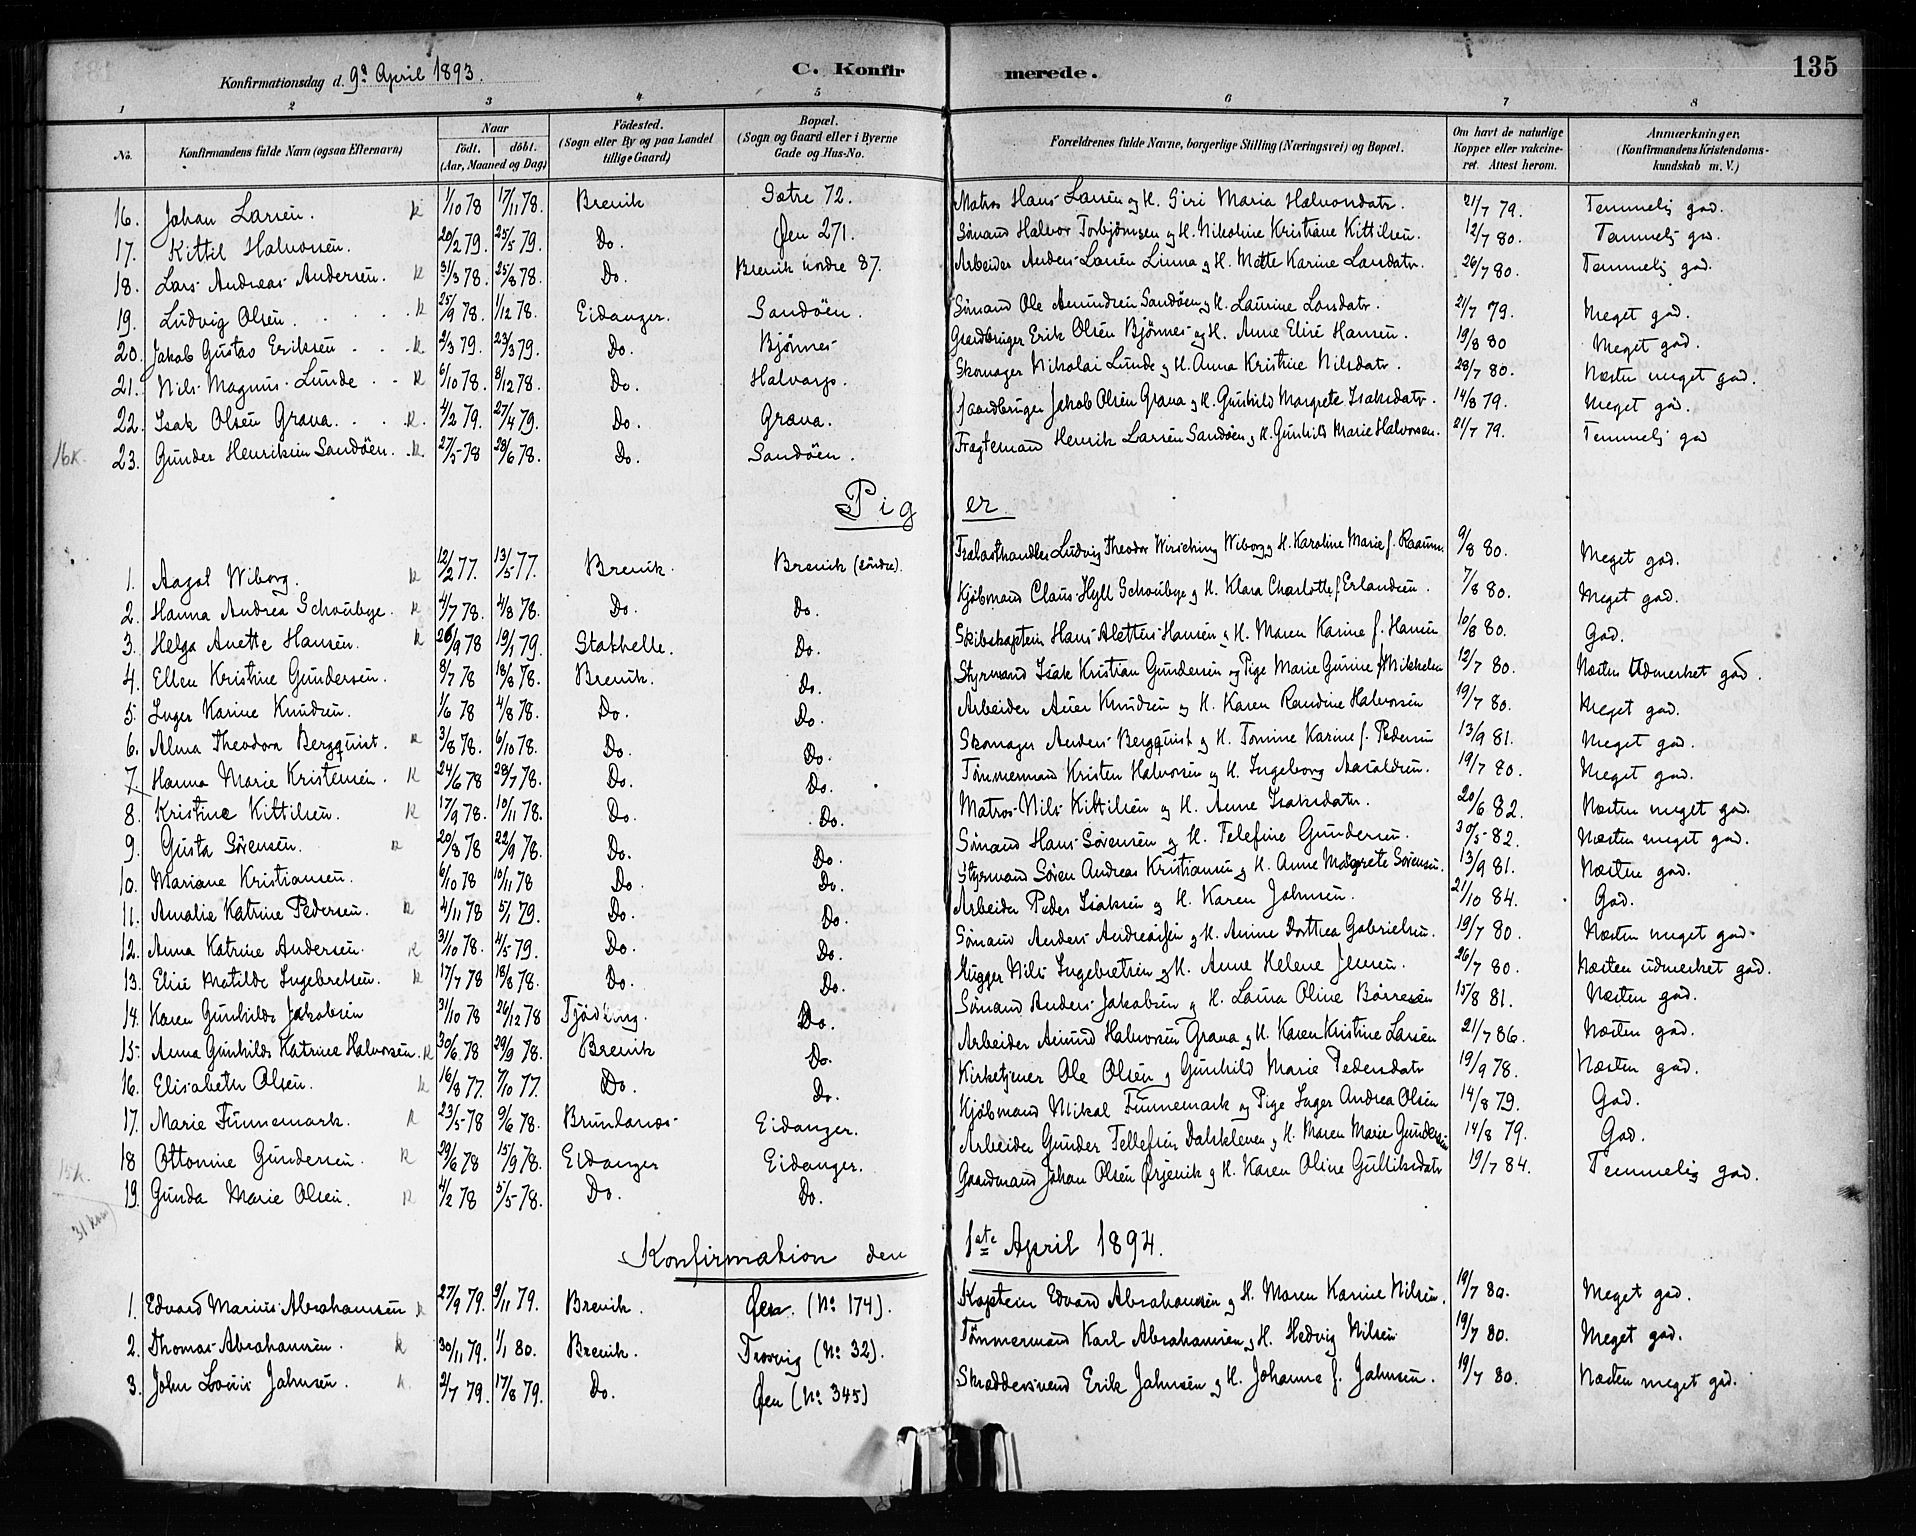 Konfirmationsdag d. 9de April 1893. C. Konfirmerede. 135
1 2 3 4 5 6 7 8
No. Konfirmandens fulde Navn (ogsaa Efternavn) Naar født. døbt. (Aar, Maaned og Dag) Fødested. (Sogn eller By og paa Landet tillige Gaard) Bopæl. (Sogn og Gaard eller i Byerne Gade og Hus-No. Forældrenes fulde Navne, borgerlige Stilling (Næringsvei) og Bopæl. Om havt de naturlige Kopper eller vakcineret. Attest herom. Anmærkninger. (Konfirmandens Kristendomskundskab m. V.)
16. Johan Larsen. k 1/10 78 17/11 78. Brevik Sætre 72. Matros Hans Larsen og H. Siri Maria Halvorsdatr. 21/7 79. Temmelig god.
17. Kittil Halvorsen. 20/2 79. 25/5 79. Do. Øen 271. Sømand Halvor Torbjörnsen og H. Nikoline Kristiane Kittilsen. 12/7 80. Temmelig god.
18. Lars Andreas Andersen. k 31/3 78. 25/8 78. Do. Brevik nordre 87. Arbeider Anders Larsen Linna og H. Mette Karine Larsdatr. 26/7 80. Temmelig god.
19. Ludvig Olsen. k 25/9 78. 1/12 78. Eidanger. Sandöen. Sömand Ole Amundsen Sandöen og H. Laurine Larsdatr. 21/7 79. Meget god.
20. Jakob Gustav Eriksen k 2/3 79. 23/3 79. Do. Bjönnes Gaardbruger Erik Olsen Bjönnes og H. Anne Elise Hansen. 19/8 80 Meget god.
21. Nils Magnus Lunde k 6/10 78. 8/12 78. Do. Halvarp. Skomager Nikolai Lunde og H. Anna Kristine Nilsdatr. 28/7 80. Næsten meget god.
22. Isak Olsen Grava. k. 4/2 79. 27/4 79. Do. Grava. Gaardbruger Jakob Olsen Grava og H. Gunhild Margrete Isaksdatr. 14/8 79. Meget god.
16k. 23. Gunder Henriksen Sandöen. k. 27/5 78 28/6 78. Do. Sandöen. Fragtemand Henrik Larsen Sandöen og H. Gunhild Marie Halvorsen. 21/7 79. Temmelig god
Piger.
1. Aagot Wiborg. k 12/2 77. 13/5 77. Brevik. Brevik (söndre). Trælasthandler Ludvig Theodor Wirsching Wiborg og H. Karoline Marie f. Raaum. 9/8 80. Meget god.
2. Hanna Andrea Schoubye. k 4/7 78. 4/8 78. Do. Do. Kjöbmand Claus Hyll Schoubye og H. Klara Charlotte f. Erlandsen. 7/8 80. Meget god.
3. Helga Anette Hansen. k 26/9 78 19/1 79. Stathelle. Do. Skibskaptein Hans Alettus Hansen og H. Maren Karine f. Hansen 10/8 80. God.
4. Ellen Kristine Gundersen. 8/7 78 18/8 78. Brevik. Do. Styrmand Isak Kristian Gundersen og Pige Marie Gurine f. Mikkelsen 12/7 80. Næsten Udmerket god.
5. Inger Karine Knudsen. 1/6 78 4/8 78. Do. Do. Arbeider Aner Knudsen og H. Karen Randine Halvorsen 19/7 80. Meget god.
6. Alma Theodora Bergquist. k 3/8 78. 6/10 78. Do. Do. Skomager Anders Bergquist og H. Tomine Karine f. Pedersen 13/9 81. Meget god.
7. Hanna Marie Kristensen. k 24/6 78 28/7 78. Do. Do. Tömmermand Kristen Halvorsen og H. Ingeborg Haraldsen. 19/7 80. Meget god.
8. Kristine Kittilsen. k 17/9 78. 10/11 78. Do. Do. Matros Nils Kittilsen og H. Anne Isaksdatr. 20/6 82. Næsten meget god.
9. Gusta Sörensen. k 20/8 78 22/9 78. Do. Do. Sömand Hans Sörensen og H. Telefine Gundersen. 30/5 82. Næsten meget god.
10. Mariane Kristiansen. 6/10 78 10/11 78 Do. Do. Styrmand Sören Andreas Kristiansen og H. Anne Margrete Sörensen. 13/9 81. Næsten god.
11. Amalie Katrine Pedersen. k 4/11 78 5/1 79. Do. Do. Arbeider Peder Isaksen og H. Karen Johnsen. 21/10 84. God.
12. Anna Katrine Andersen. k 31/10 78. 4/5 79. Do. Do. Sömand Anders Andreassen og H. Anine Dorthea Gabrielsen. 19/7 80. Næsten meget god.
13. Elise Matilde Ingebretsen. k 17/7 78 18/8 78. Do. Do. Hugger Nils Ingebretsen og H. Anne Helene Jensen. 26/7 80. Næsten udmerket god.
14. Karen Gunhilde Jakobsen 31/10 78 26/12 78 Do. Sömand Anders Jakobsen og H. Laura Oline Börresen 15/8 81. Næsten god.
15. Anna Gunhilde Katrine Halvorsen. k 30/6 78 29/9 78. Brevik Do. Arbeider Amund Halvorsen Grava og H. Karen Kristine Larsen 21/7 86. Næsten god.
16. Elisabeth Olsen. k 16/8 77. 7/10 77. Do. Do. Kirketjener Ole Olsen og Gunhild Marie Pedersdatr 19/9 78. Næsten god.
17. Marie Finnemark. k 23/5 78 9/6 78. Brunlanæs Eidanger. Kjöbmand Mikal Finnemark og Pige Inger Andrea Olsen 14/8 79. God.
18 Ottomine Gundersen. k 29/6 78 15/9 78. Eidanger Eidanger. Arbeider Gunder Tellefsen Dalskleven og H. Maren Marie Gundersen 14/8 79. God.
15k. 19. Gunda Marie Olsen. k 4/2 78 5/5 78. Do. Do. Gaardmand Johan Olsen Örjevik og H. Karen Oline Gulliksdatr 19/7 84. Temmelig god.
Konfirmation den 1ste April 1894.
1. Edvard Marius Abrahamsen k 27/9 79. 9/11 79. Brevik. Øen. (No 174). Kaptein Edvard Abrahamsen og H. Maren Karine Nilsen. 19/7 80. Meget god.
2. Thomas Abrahamsen. k 30/11 79. 1/1 80. Brevik. Trosvig (No 32). Tömmermand Karl Abrahamsen og H. Hedvig Nilsen 19/7 80. Meget god.
3. John Louis Jahnsen. k. 2/7 79. 17/8 79. Do. Øen (No 345) Skræddersvend Erik Jahnsen og H. Johanne f. Jahnsen. 19/7 80. Næsten meget god.